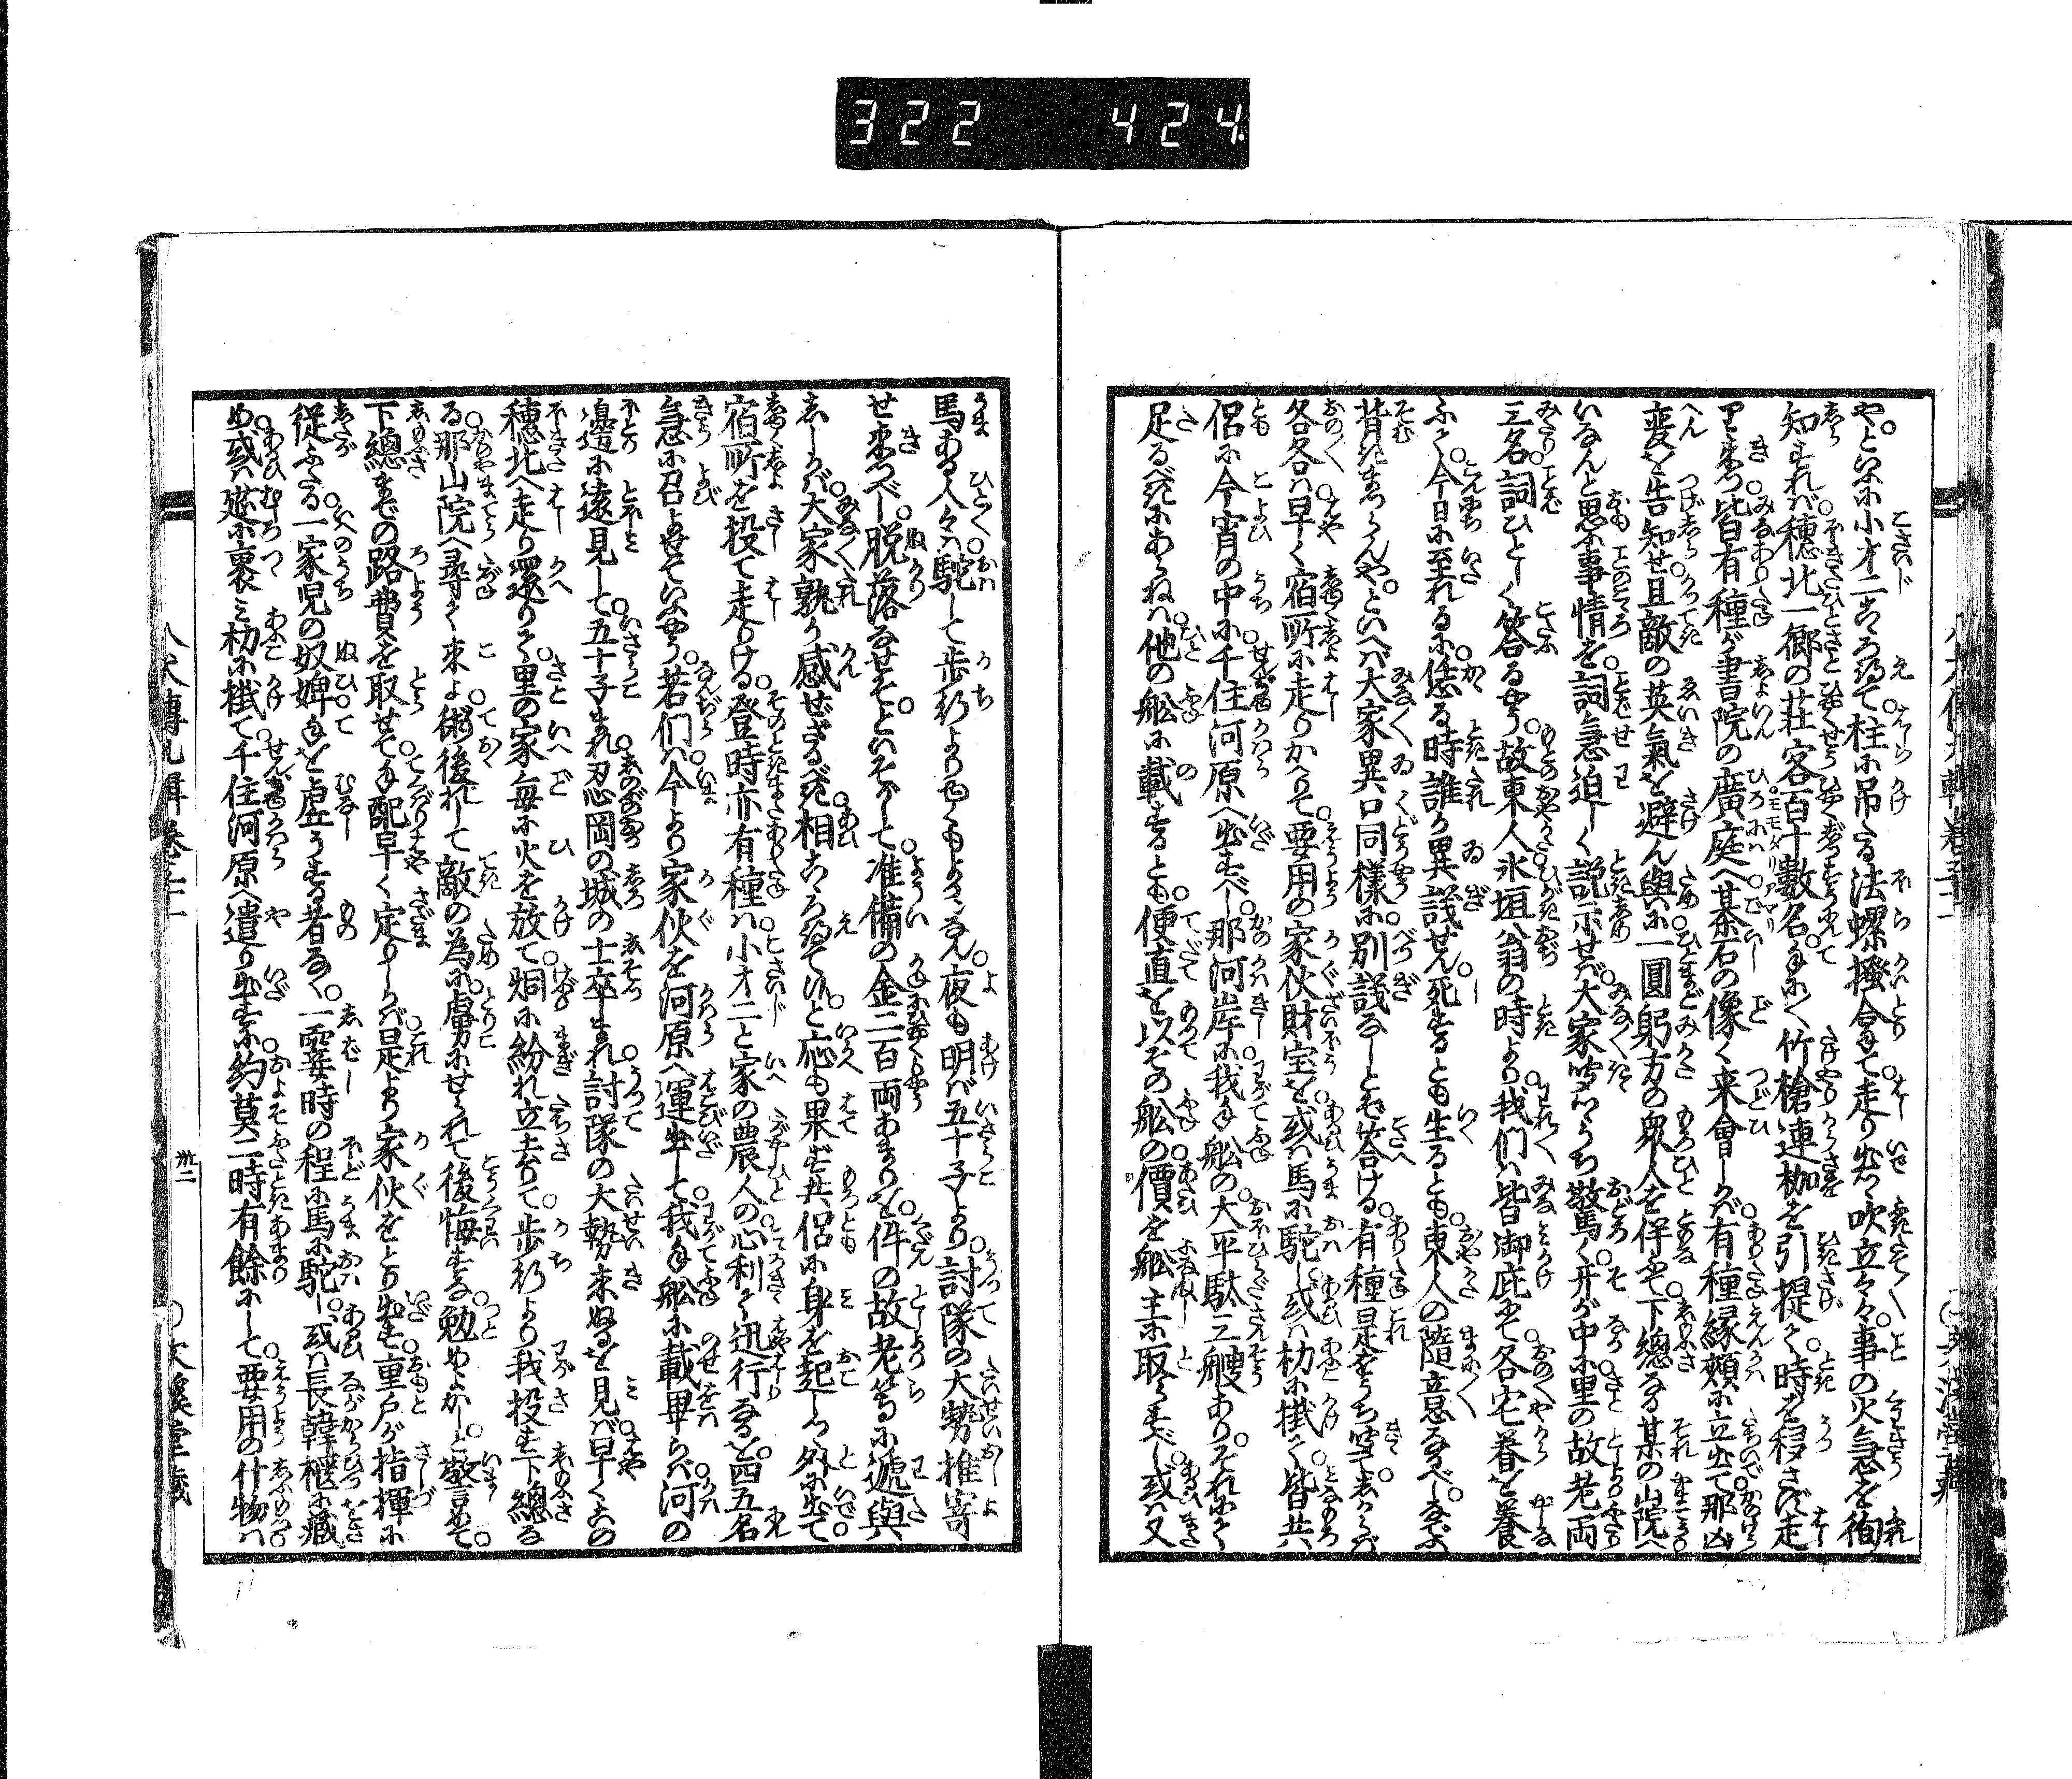 322 424
やといふに小才二こゝろ得て柱に吊たる法螺掻拿て走り出つ吹立々々事の火急を徇
知すれば穂北一郷の荘客百十數名手に〳〵竹槍連枷を引提て時を移さず走
り來つ皆有種が書院の廣庭へ棊石の像く来會しかば有種縁頬に立出て那凶
変を告知せ且敵の英氣を避ん與に一圓躬方の衆人を俘て下總なる某の山院へ
いなんと思ふ事情を詞急迫しく説示せば大家齊一うち驚く开が中に里の故老両
三名詞ひとしく答るやう故東人氷垣翁の時より我們は皆御庇にて各宅眷を養
ふて今日に至れるに恁る時誰か異議せん死するとも生るとも東人の隨意なるべしなでふ
背きまつらんやといへば大家異口同樣に別議なしとぞ答ける有種是をうち聞てしからば
各各は早く宿所に走りかへりて要用の家伙財宝を或は馬に駝し或は朸に掛て皆共
侶に今宵の中に千住河原へ出すべし那河岸に我手船の大平駄三艘ありそれにて
足るべきにあらねは他の船に載するとも便直を以その船の價を船主に取らすべし或は又
馬ある人々は駝して歩行よりゆくもよけん夜も明ば五十子より討隊の大勢推寄
せ來つべし脱落なせそといそがして准備の金二百両あまりを件の故老等に逓與
しゝかば大家孰か感ぜざるべき相こゝろ得ていと應も果ず共侶に身を起しつ外に出て
宿所を投て走りける登時亦有種は小才二と家の農人の心利て迅行なるを四五名
急に召よせていふやう若們は今より家伙を河原へ運出して我手船に載畢らば河の
邊に遠見して五十子まれ忍岡の城の士卒まれ討隊の大勢來ぬるを見ば早くこの
穂北へ走り還りて里の家毎に火を放て烟に紛れ立去りて歩行より我投す下總な
る那山院へ尋ねて來よ後れて敵の為に虜にせられて後悔すな勉めよかしと警めて
下總までの路費を取せて手配早く定りしかば是より家伙をとり出す重戸が指揮に
從ふたる一家児の奴婢手を虚うする者なく一霎時の程に馬に駝し或は長韓櫃に藏
め或は筵に裹み朸に掛て千住河原へ遣り出すに約莫二時有餘にして要用の什物は
八犬傳九輯卷
卅二
文溪堂藏